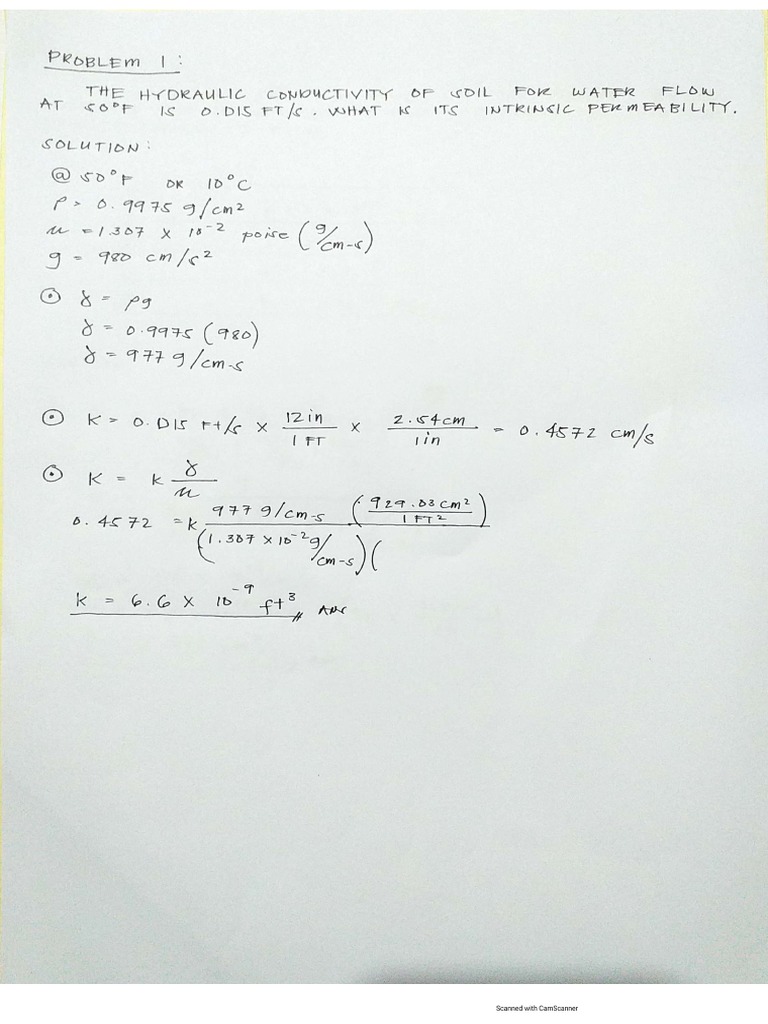 PROBLEM 1:
THE HYDRAULIC CONDUCTIVITY OF SOIL FOR WATER FLOW
AT 50°F IS 0.015 FT/S. WHAT IS ITS INTRINSIC PERMEABILITY.
SOLUTION:
@ 50°F OR 10°C
ρ = 0.9975 g/cm²
μ = 1.307 x 10⁻² poise (g/cm-s)
g = 980 cm/s²
⊙ γ = ρg
γ = 0.9975 (980)
γ = 977 g/cm-s
⊙ K = 0.015 Ft/s x 12in/1 FT x 2.54cm/1in = 0.4572 cm/s
⊙ K = k γ/μ
0.4572 = k 977 g/cm-s (929.03 cm²/1 FT²) / (1.307 x 10⁻² g/cm-s) (
K = 6.6 x 10⁻⁹ ft³ ANS
Scanned with CamScanner